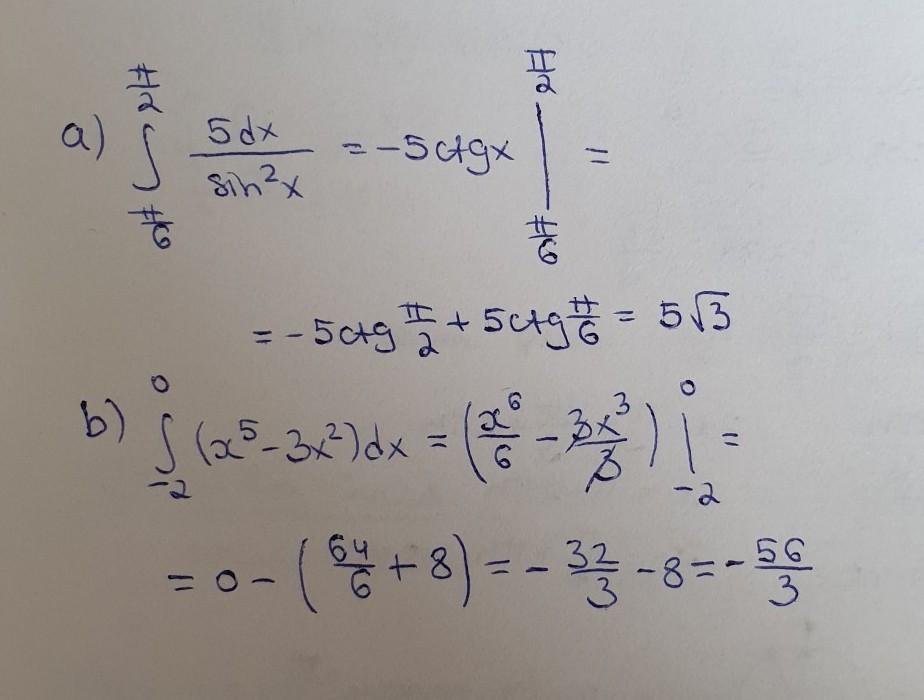 a) ∫_{π/6}^{π/2} 5dx/sin²x = -5ctgx |_{π/6}^{π/2} =
= -5ctg π/2 + 5ctg π/6 = 5√3
b) ∫_{-2}^{0} (x⁵ - 3x²)dx = (x⁶/6 - 3x³/3) |_{-2}^{0} =
= 0 - (64/6 + 8) = - 32/3 - 8 = - 56/3